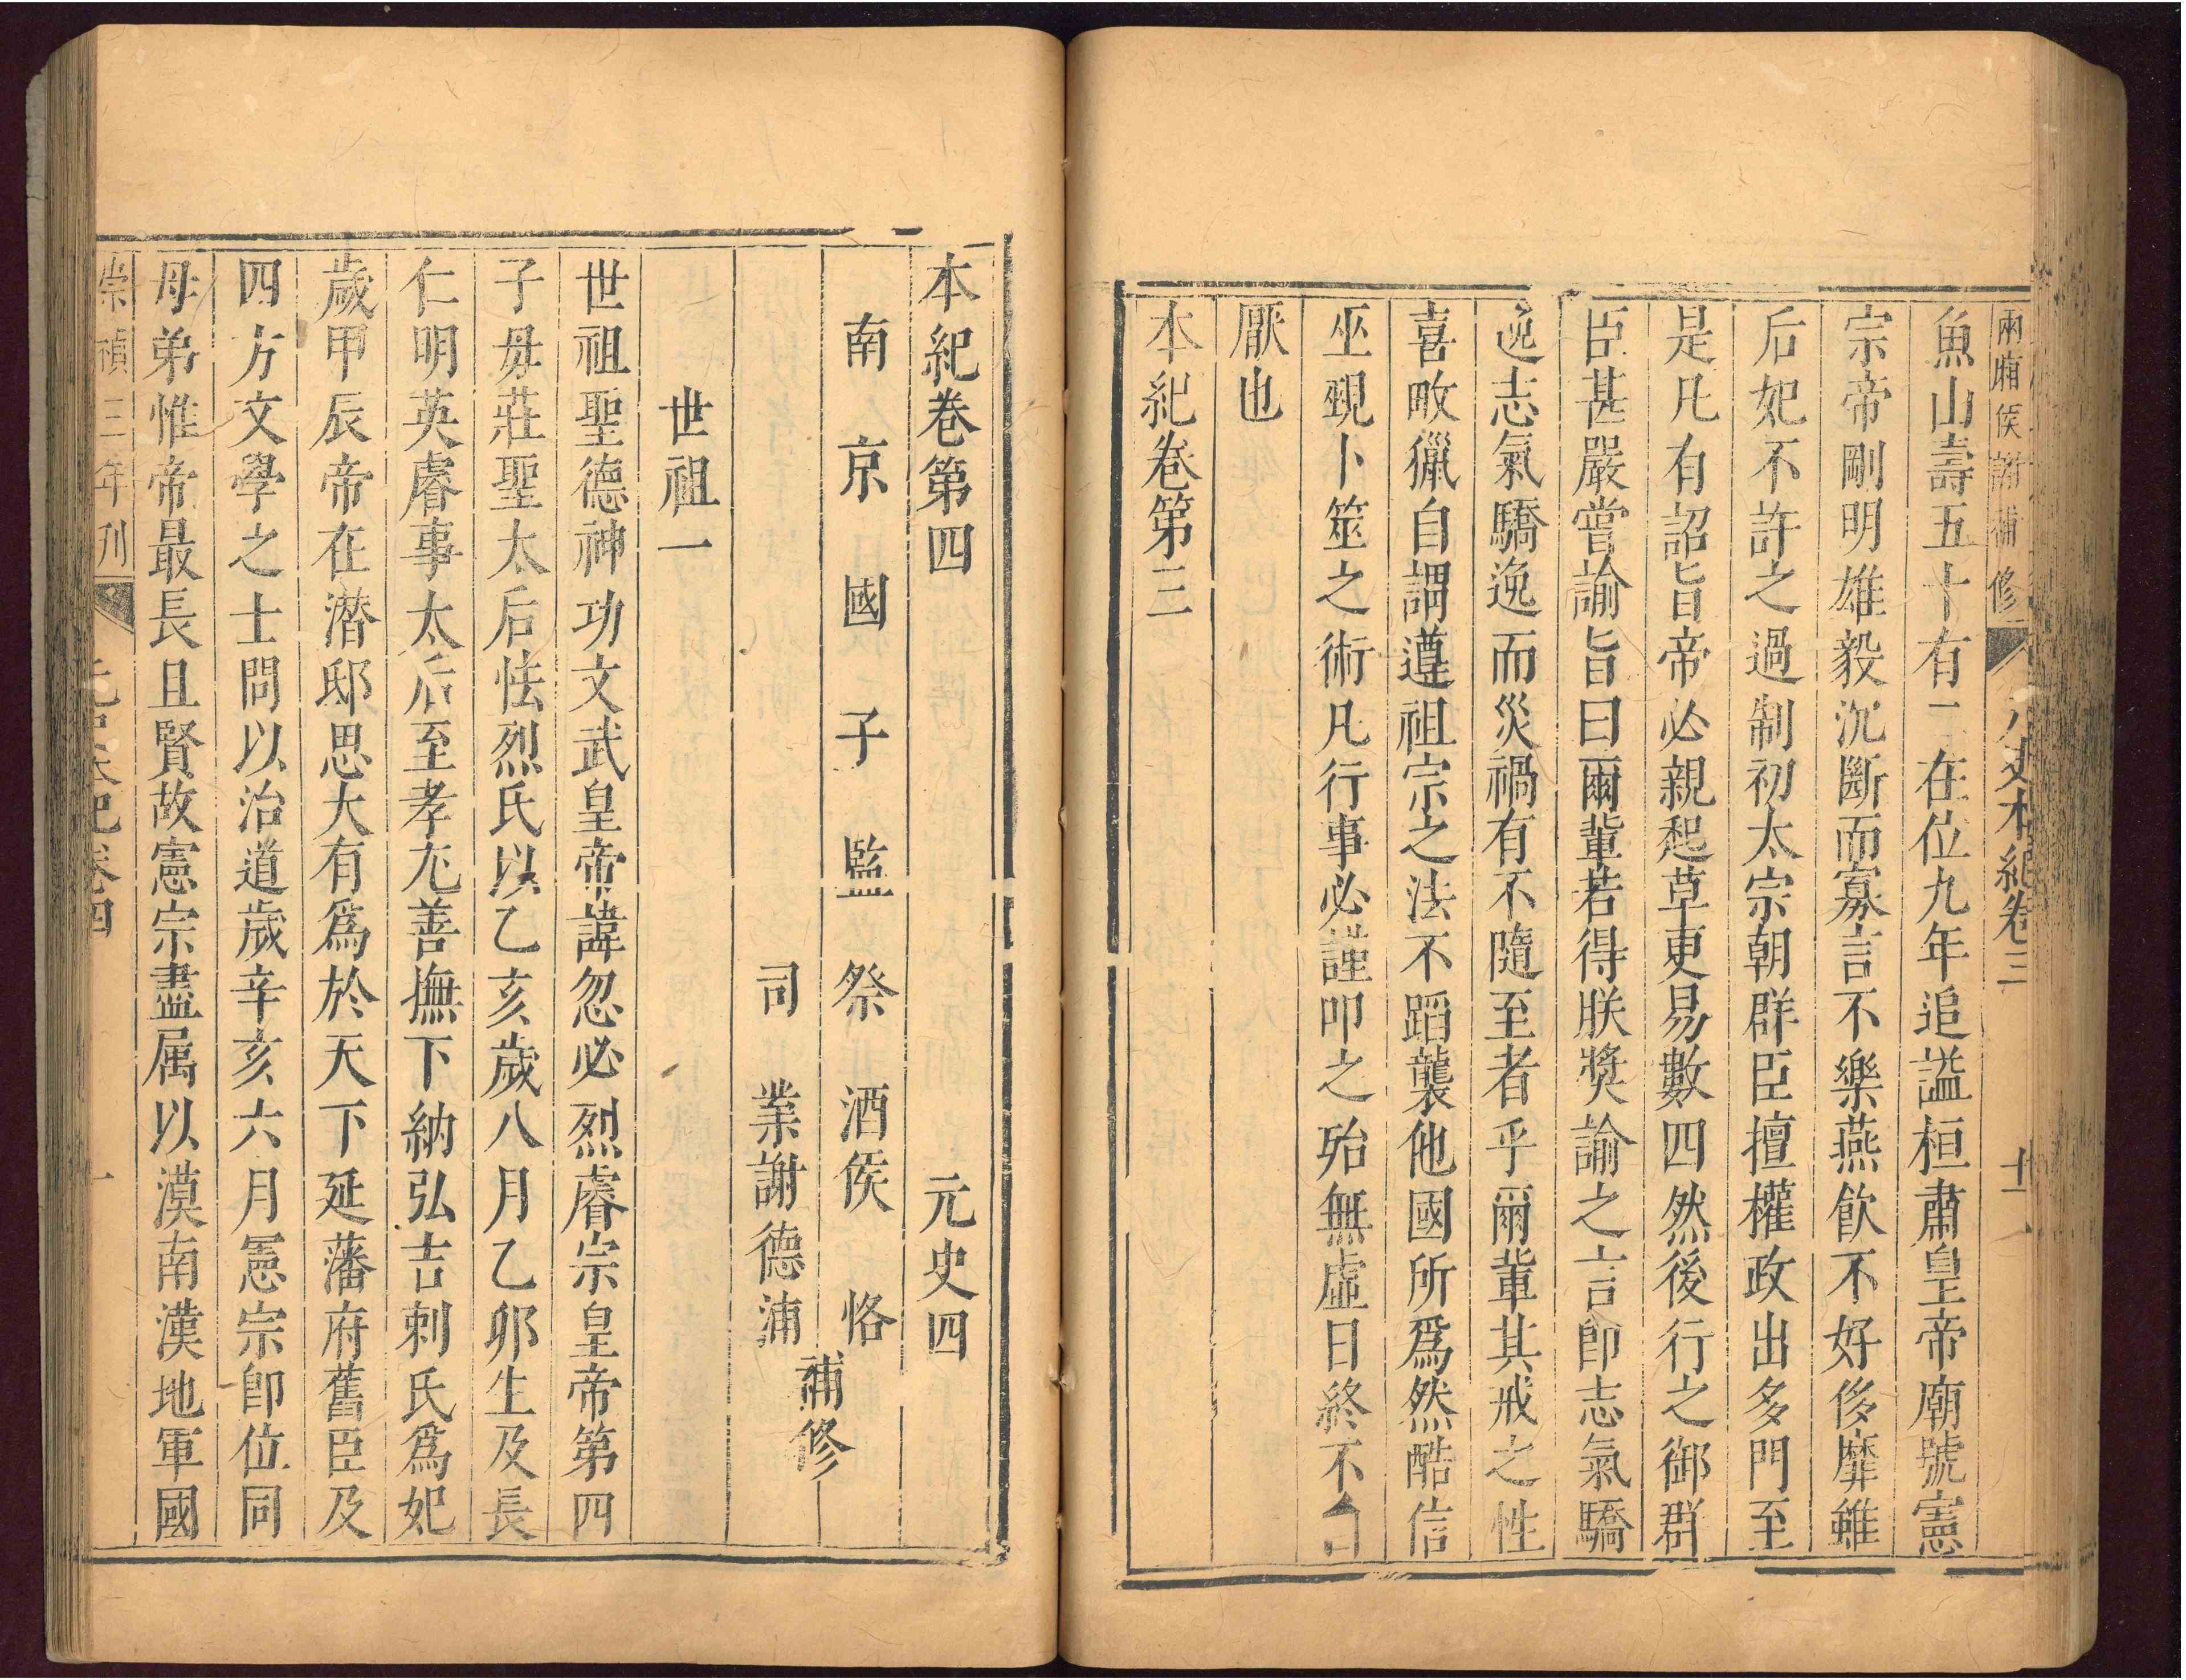 兩廂侯謝補修 元史本紀卷三 十一
魚山壽五十有二在位九年追謚桓肅皇帝廟號憲
宗帝剛明雄毅沉斷而寡言不樂燕飲不好侈靡雖
后妃不許之過制初太宗朝群臣擅權政出多門至
是凡有詔旨帝必親起草更易數四然後行之御群
臣甚嚴嘗諭旨曰爾輩若得朕奬諭之言即志氣驕
逸志氣驕逸而災禍有不隨至者乎爾輩其戒之性
喜畋獵自謂遵祖宗之法不蹈襲他國所爲然酷信
巫覡卜筮之術凡行事必謹叩之殆無虛日終不自
厭也
本紀卷第三
本紀卷第四 元史四
南京國子監祭酒侯恪
司業謝德溥 補修
世祖一
世祖聖德神功文武皇帝諱忽必烈睿宗皇帝第四
子母莊聖太后怯烈氏以乙亥歲八月乙卯生及長
仁明英睿事太后至孝尤善撫下納弘吉剌氏爲妃
歲甲辰帝在潛邸思大有爲於天下延藩府舊臣及
四方文學之士問以治道歲辛亥六月憲宗卽位同
母弟惟帝最長且賢故憲宗盡属以漠南漢地軍國
崇禎三年刊 元史本紀卷四 一